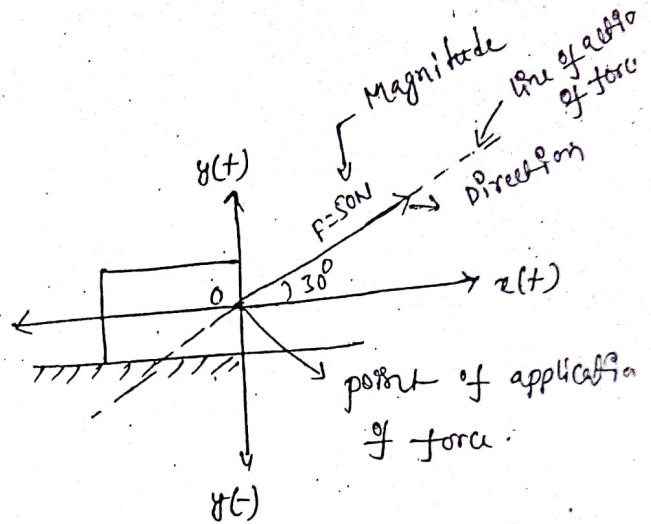 Magnitude
line of actio
of force
y(+)
F=50N
Direction
0
30°
x(+)
point of applicatio
of force.
y(-)